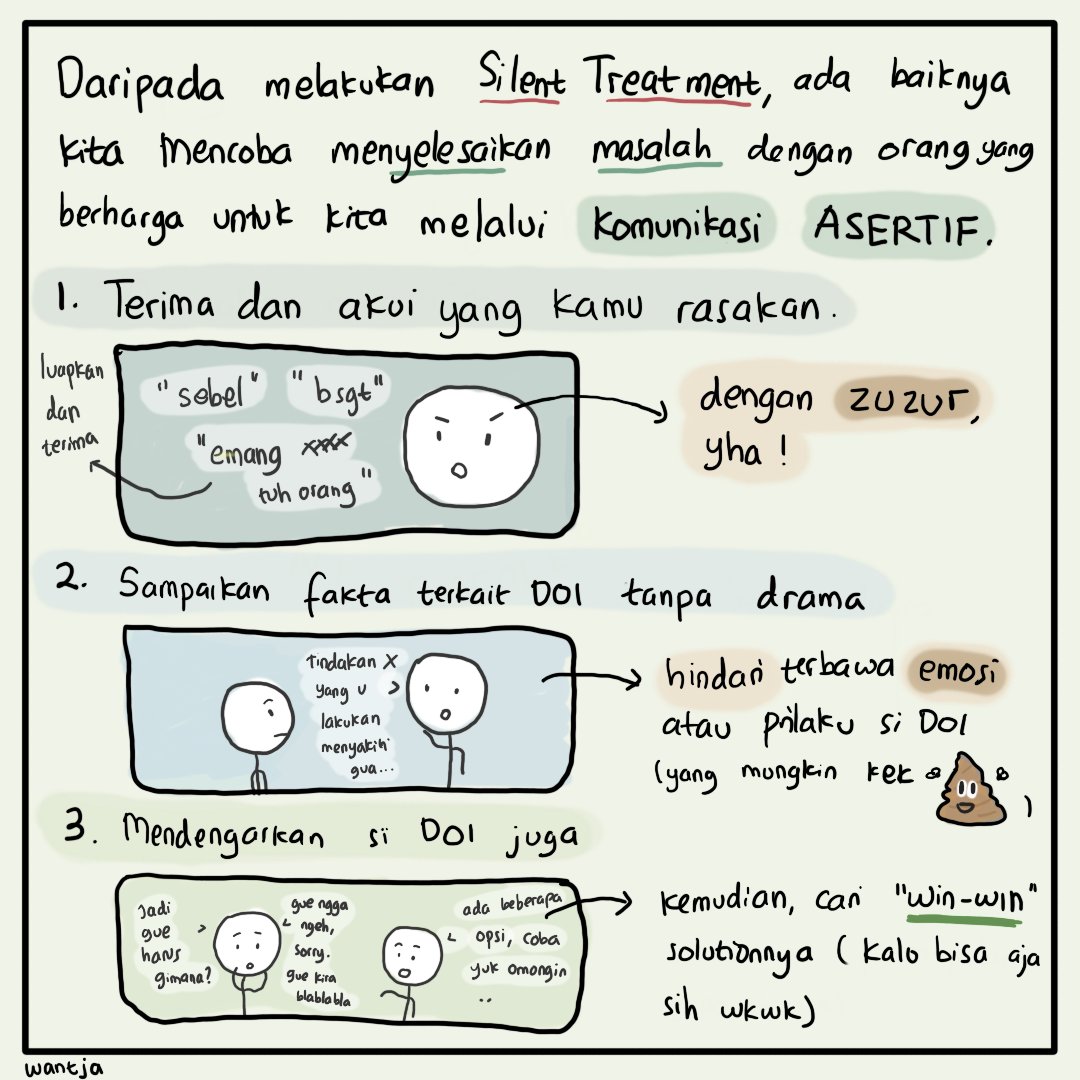 Daripada melakukan Silent Treatment, ada baiknya
kita Mencoba menyelesaikan masalah dengan orang yang
berharga untuk kita melalui Komunikasi ASERTIF.
1. Terima dan akui yang kamu rasakan.
luapkan
dan
terima
"sebel" "bsgt"
"emang xxxx
tuh orang"
dengan zuzur,
yha !
2. Sampaikan fakta terkait DOI tanpa drama
tindakan X
yang u
lakukan
menyakiti
gua...
hindari terbawa emosi
atau prilaku si DOI
(yang mungkin kek )
3. Mendengarkan si DOI juga
Jadi
gue
harus
gimana?
gue ngga
ngeh,
sorry.
gue kira
blablabla
ada beberapa
opsi, coba
yuk omongin
..
kemudian, cari "win-win"
solutionnya (kalo bisa aja
sih wkwk)
wantja